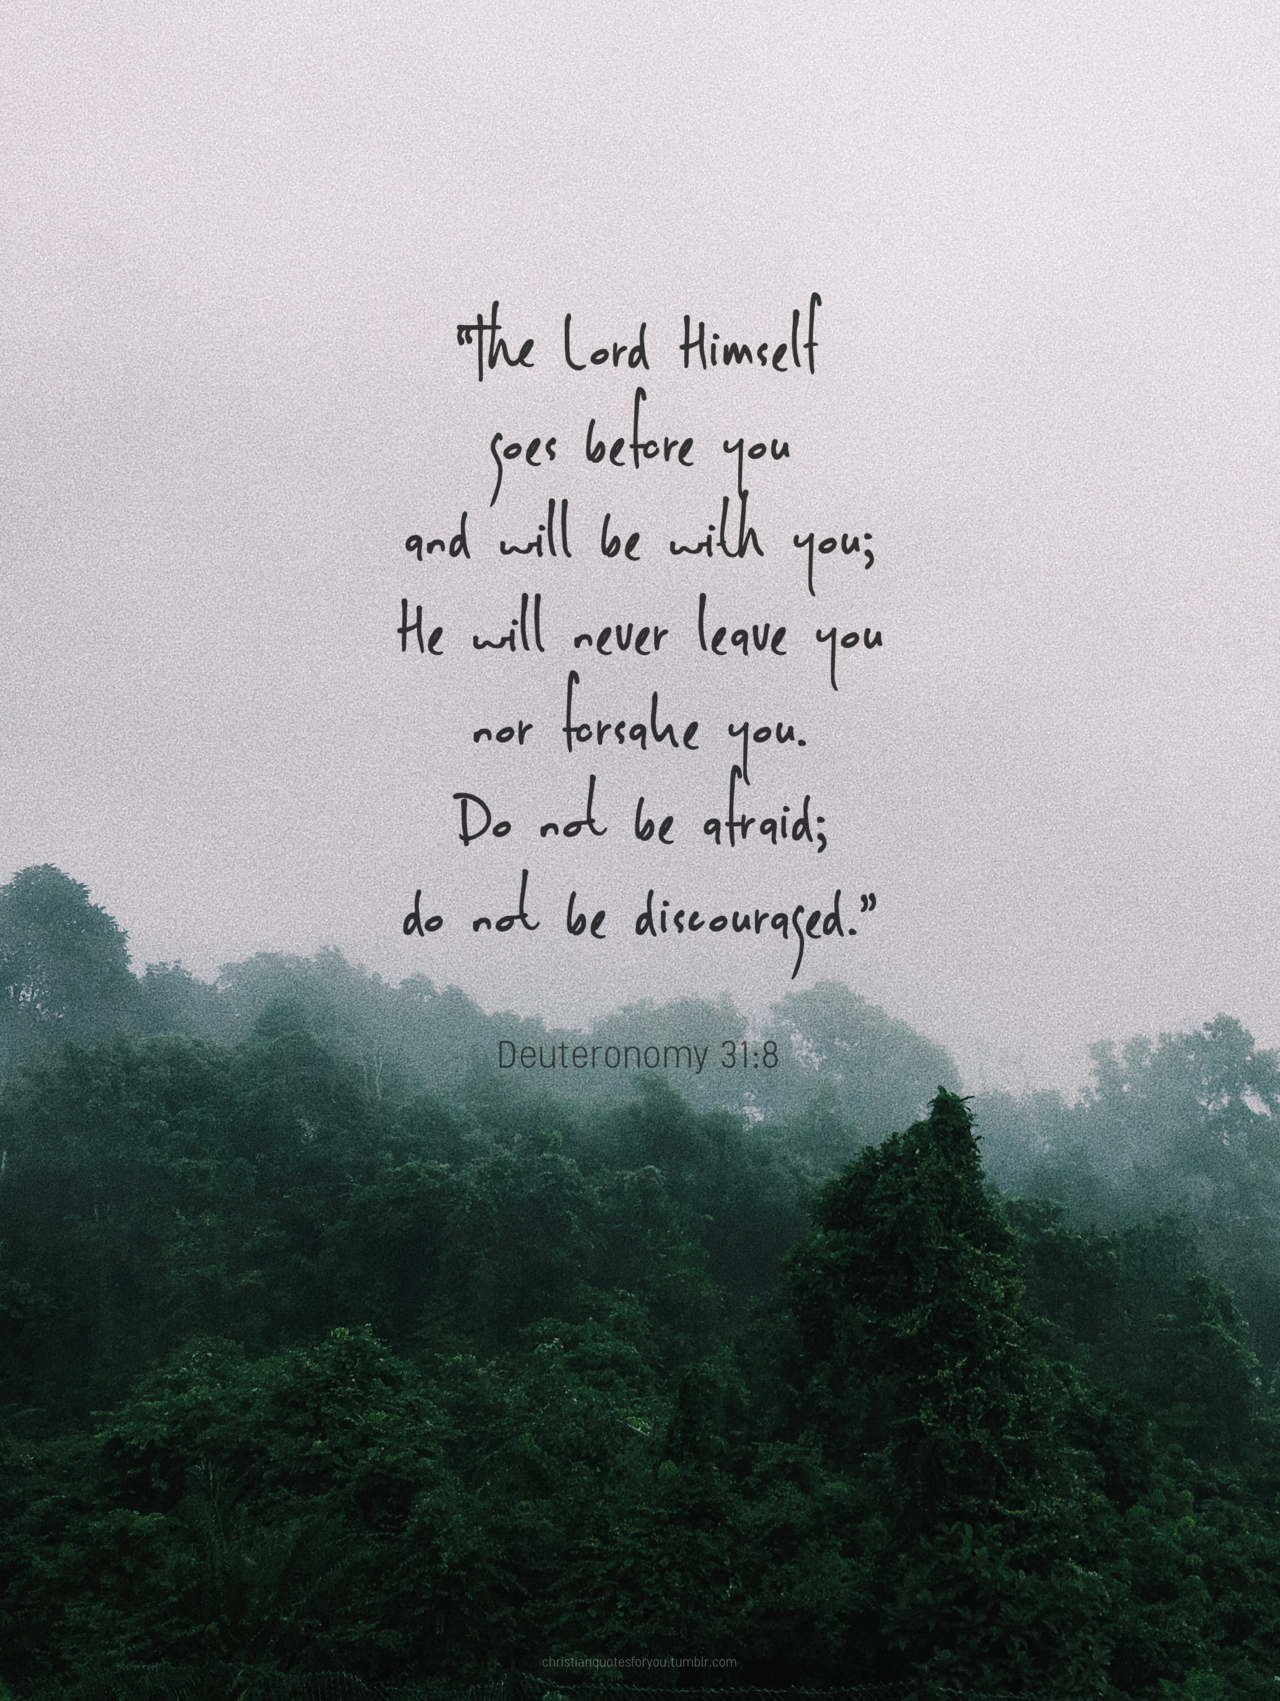 “The Lord Himself
goes before you
and will be with you;
He will never leave you
nor forsake you.
Do not be afraid;
do not be discouraged.”
Deuteronomy 31:8
christianquotesforyou.tumblr.com